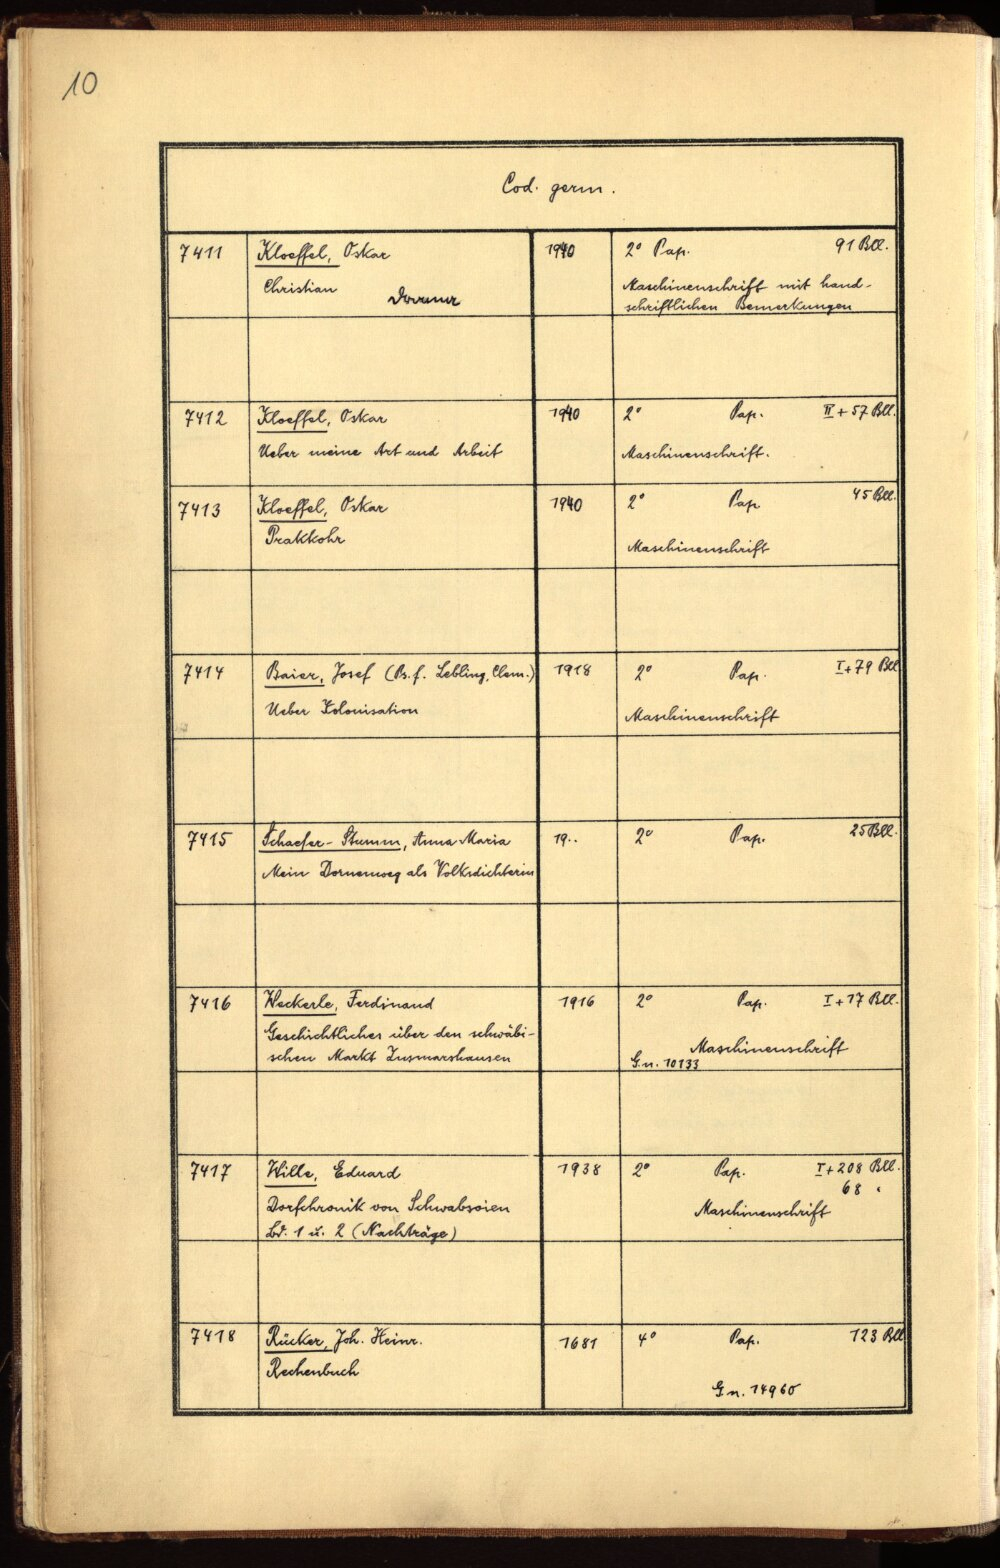 10
Cod. germ.
7411 Kloeffel, Oskar 1940 2° Pap. 91 Bll.
Christian Maschinenschrift mit hand-
schriftlichen Bemerkungen
7412 Kloeffel, Oskar 1940 2° Pap. II + 57 Bll.
Ueber meine Art und Arbeit Maschinenschrift.
7413 Kloeffel, Oskar 1940 2° Pap 45 Bll.
Prakkohr Maschinenschrift
7414 Baier, Josef (Ps. f. Lebling, Clem.) 1918 2° Pap. I + 79 Bll
Ueber Kolonisation Maschinenschrift
7415 Schaefer-Stumm, Anna Maria 19.. 2° Pap. 25 Bll.
Mein Dornenweg als Volksdichterin
7416 Weckerle, Ferdinand 1916 2° Pap. I + 17 Bll.
Geschichtliches über den schwäbi-
schen Markt Zusmarshausen Maschinenschrift
G.n. 10133
7417 Wille, Eduard 1938 2° Pap. I + 208 Bll.
68 "
Dorfchronik von Schwabsoien Maschinenschrift
Bd. 1 u. 2 (Nachträge)
7418 Rücker, Joh. Heinr. 1681 4° Pap. 123 Bll
Rechenbuch
G.n. 14960